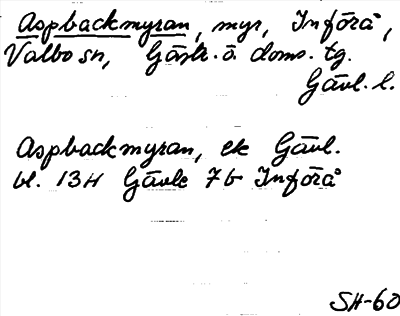 Aspbackmyran, myr, Införå,
Valbo sn, Gästr. ö. doms. tg.
Gävl. l.
Aspbackmyran, ek Gävl.
bl. 13H Gävle 7b Införå
SH-60